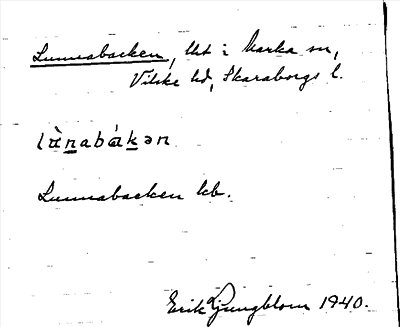 Lunnabacken, lht i Marka sn,
Vilske hd, Skaraborgs l.
lùnabákən
Lunnabacken kb.
Erik Ljungblom 1940.